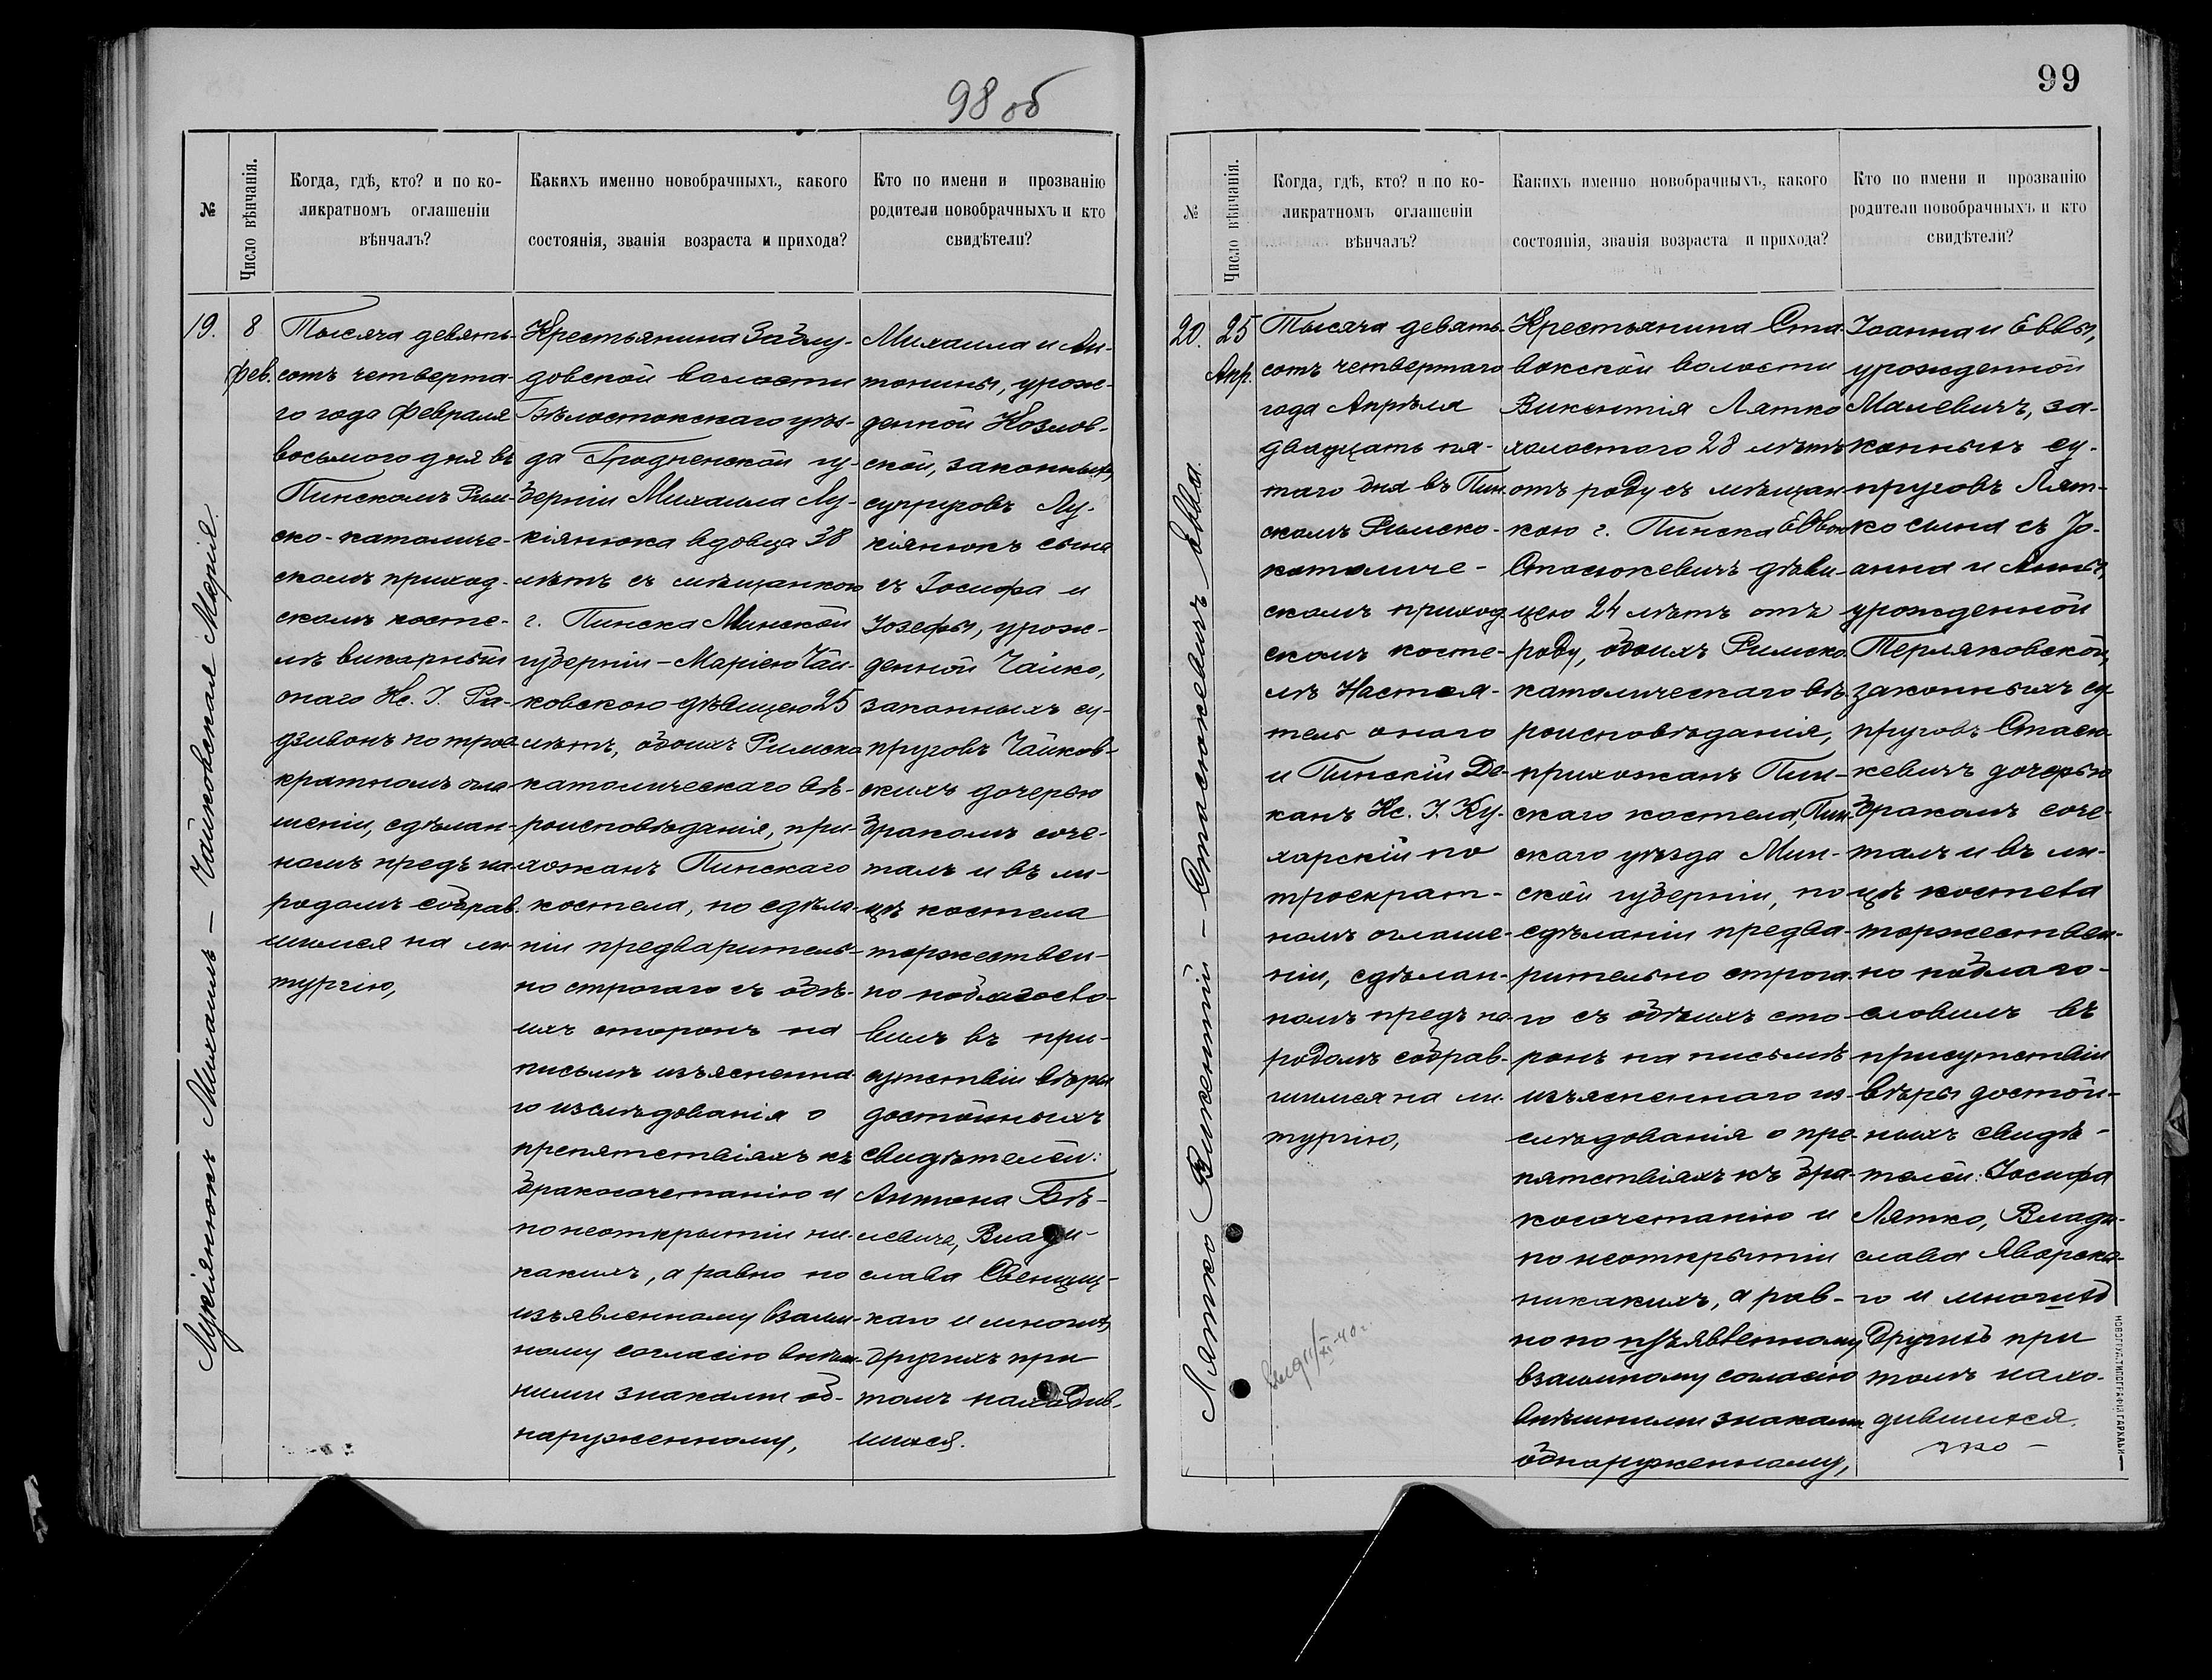 98 об
№
Число вѣнчанія.
Когда, гдѣ, кто? и по ко-
ликратномъ оглашеніи
вѣнчалъ?
Какихъ именно новобрачныхъ, какого
состоянія, званія возраста и прихода?
Кто по имени и прозванію
родители новобрачныхъ и кто
свидѣтели?
19.
8
Фев.
Лукіянюкъ Михаилъ – Чайковская Марія.
Тысяча девять-
сотъ четверта-
го года Февраля
восьмого дня въ
Пинскомъ Рим-
ско-католиче-
скомъ приход-
скомъ косте-
лѣ викарный
онаго Кс. І. Ра-
дзивонъ по трое-
кратномъ огла-
шеніи, сдѣлан-
номъ предъ на-
родомъ собрав-
шимся на ли-
тургію,
Крестьянина Заблу-
довской волости
Бѣлостокскаго уѣз-
да Гродненской гу-
берніи Михаила Лу-
кіянюка вдовца 38
лѣтъ съ мѣщанкою
г. Пинска Минской
губерніи – Маріею Чай-
ковскою дѣвицею 25
лѣтъ, обоихъ Римско
католическаго вѣ-
роисповѣданія, при-
хожанъ Пинскаго
костела, по сдѣла-
ніи предваритель-
но строгаго съ обѣ-
ихъ сторонъ на
письмѣ изъясненна-
го изслѣдованія о
препятствіяхъ къ
бракосочетанію и
по неоткрытіи ни-
какихъ, а равно по
изъявленному взаим-
ному согласію внѣш-
ними знаками об-
наруженному,
Михаила и Ан-
тонины, урож-
денной Козлов-
ской, законныхъ
супруговъ Лу-
кіянюкъ сына
съ Іосифа и
Юзефы, урож-
денной Чайко,
законныхъ су-
пруговъ Чайков-
скихъ дочерью
бракомъ соче-
талъ и въ ли-
цѣ костела
торжествен-
но поблагосло-
вилъ въ при-
сутствіи вѣры
достойныхъ
свидѣтелей:
Антона Бѣ-
левича, Влади-
слава Свенциц-
каго и многихъ
другихъ при
томъ находив-
шихся.
99
№
Число вѣнчанія.
Когда, гдѣ, кто? и по ко-
ликратномъ оглашеніи
вѣнчалъ?
Какихъ именно новобрачныхъ, какого
состоянія, званія возраста и прихода?
Кто по имени и прозванію
родители новобрачныхъ и кто
свидѣтели?
20.
25
Апр.
Лятко Викентій – Стасюкевичъ Евва.
Тысяча девять-
сотъ четвертаго
года Апрѣля
двадцать пя-
таго дня въ Пин-
скомъ Римско-
католиче-
скомъ приход-
скомъ косте-
лѣ Настоя-
тель онаго
и Пинскій Де-
канъ Кс. І. Ку-
харскій по
троекрат-
номъ оглаше-
ніи, сдѣлан-
номъ предъ на-
родомъ собрав-
шимся на ли-
тургію,
Крестьянина Ста-
вокской волости
Викентія Лятко
холостого 28 лѣтъ
отъ роду съ мѣщан-
кою г. Пинска Еввою
Стасюкевичъ дѣви-
цею 24 лѣтъ отъ
роду, обоихъ Римско-
католическаго вѣ-
роисповѣданія,
прихожанъ Пин-
скаго костела, Пин-
скаго уѣзда Мин-
ской губерніи, по
сдѣланіи предва-
рительно строга-
го съ обѣихъ сто-
ронъ на письмѣ
изъясненнаго из-
слѣдованія о пре-
пятствіяхъ къ бра-
косочетанію и
по неоткрытіи
никакихъ, а рав-
но по изъявленному
взаимному согласію
внѣшними знаками
обнаруженному,
Іоанна и Еввы,
урожденной
Малевичъ, за-
конныхъ су-
пруговъ Лят-
ко сына съ Іо-
анна и Анны,
урожденной
Терляковской,
законныхъ су-
пруговъ Стасю-
кевичъ дочерью
бракомъ соче-
талъ и въ ли-
цѣ костела
торжествен-
но поблаго-
словилъ въ
присутствіи
вѣры достой-
ныхъ свидѣ-
телей: Іосифа
Лятко, Влади-
слава Яворска-
го и многихъ
другихъ при
томъ нахо-
дившихся.